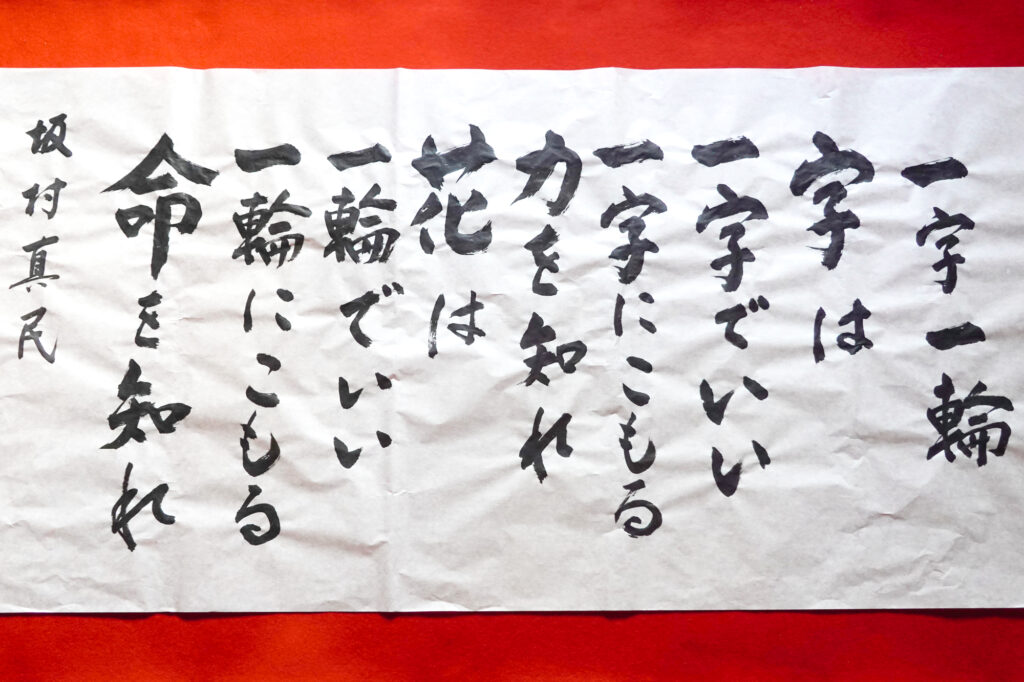 一字一輪
字は
一字でいい
一字にこもる
力を知れ
花は
一輪でいい
一輪にこもる
命を知れ
坂村真民